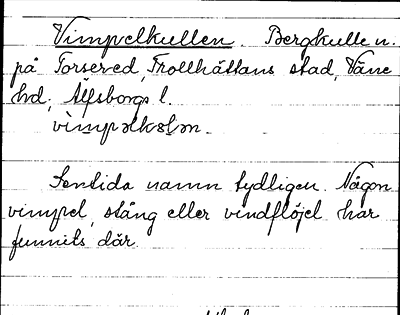 Vimpelkullen. Bergkulle n.
på Torsered, Trollhättans stad, Väne
hd, Älfsborgs l.
Sentida namn tydligen. Någon
vimpel, stång eller vindflöjel har
funnits där.